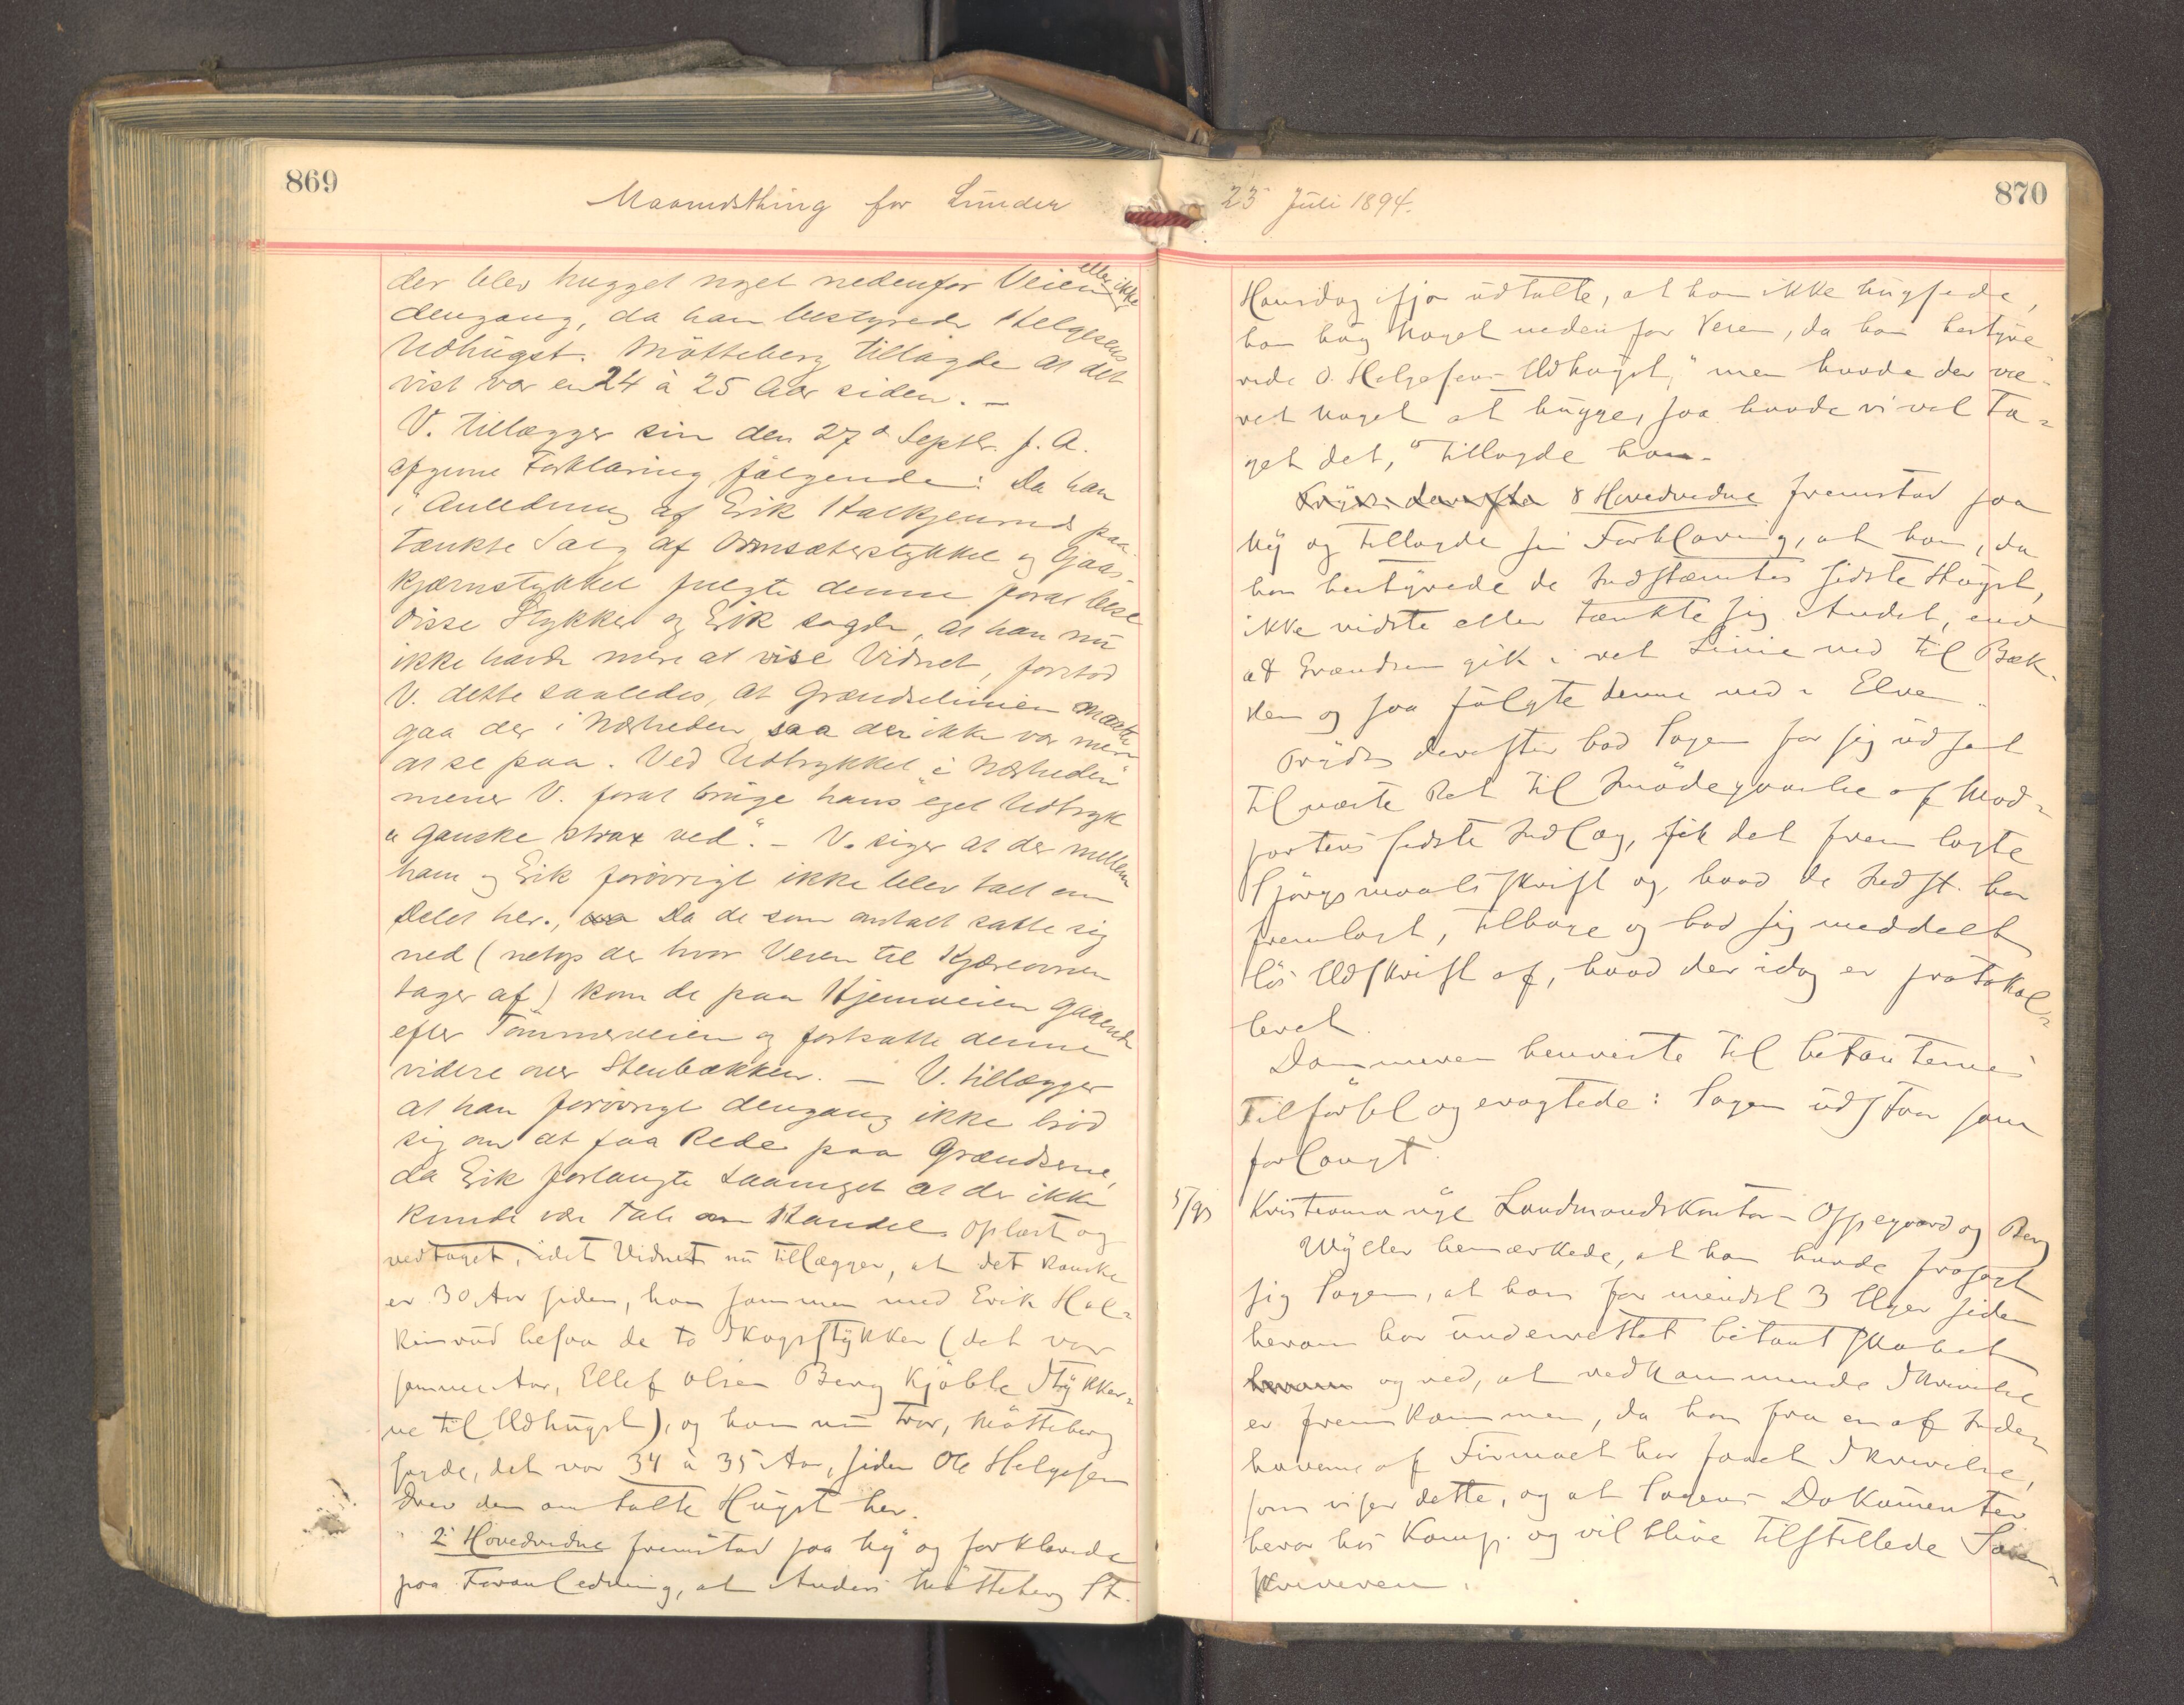 869
Maanedsthing for Lunder
der blev hugget noget nedenfor Veien eller ikke
dengang, da han bestyrede Helgesens
Udhugst. Mötteberg tillagde at det
vist var en 24 à 25 Aar siden. —
V. tillægger sin den 27de Septbr. f. A.
afgivne Forklaring følgende: Da han
i Anledning af Erik Halkjensruds paa-
tænkte Salg af Ormsæterstykket og Gaas-
kjærnstykket fulgte denne forat bese
disse Stykker og Erik sagde, at han nu
ikke havde mere at vise Vidnet, forstod
V. dette saaledes, at Grændselinien maatte
gaa der i Nærheden saa der ikke var mere
at se paa. Ved Udtrykket "i Nærheden"
mener V. forat bruge hans eget Udtryk
"ganske strax ved". — V. siger at der mellem
ham og Erik forövrigt ikke blev talt om
Delet her. Da de som omtalt satte sig
ned (netop der hvor Veien til
tager af) kom de paa Hjemveien gaaende
efter Tömmerveien og fortsatte denne
videre over Stenbækken. — V. tillægger
at han forövrigt dengang ikke bröd
sig om at faa Rede paa Grændserne,
da Erik forlangte saameget at der ikke
kunde være Tale om Handel. Oplæst og
vedtaget, idet Vidnet nu tillægger, at det kanske
er 30 Aar siden, han sammen med Erik Hal-
kinrud besaa de to Skogstykker (det var
samme Aar, Ellef Olsen Berg kjöbte Stykker-
ne til Udhugst), og han nu tror, Mötteberg
sagde, det var 34 à 35 Aar, siden Ole Helgesen
drev den omtalte Hugst her.
2det Hovedvidne fremstod paa ny og forklarede
paa Foranledning, at Anders Mötteberg St.
23 Juli 1894.
870
Hansdag ifjor udtalte, at han ikke hugsede,
han hug noget nedenfor Veien, da han besty-
rede O. Helgesens Udhugst, "men havde der væ-
ret noget at hugge, saa havde vi vel ta-
get det," tillagde han.
8 Hovedvidne fremstod paa
ny og tillagde sin Forklaring, at han, da
han bestyrede de Indstævntes sidste Hugst,
ikke vidste eller tænkte sig Andet, end
at Grændsen gik i ret Linie ned til Bæk-
ken og saa fulgte denne ned i Elven.
Prydz derefter bad Sagen for sig udsat
til næste Ret til Imödegaaelse af Mod-
partens sidste Indlæg, fik det fremlagte
Spörgsmaalsskrift og hvad de Indst. har
fremlagt, tilbage og bad sig meddelt
lös Udskrift af, hvad der idag er protokol-
leret.
Dommeren henviste til Citanternes
Tilförsel og eragtede: Sagen udstaar som
forlangt.
5/93 Kristiania nye Landmandskontor - Oppegaard og Berg
Wyller bemærkede, at han havde frasagt
sig Sagen, at han for mindst 3 Uger siden
herom har underrettet Citantskabet
og ved, at vedkommende Skrivelse
er fremkommen, da han fra en af Inde-
haverne af Firmaet har faaet Skrivelse,
som viser dette, og at Sagens Dokumenter
beror hos Komp. og vil blive tilstillede Soren-
skriveren.